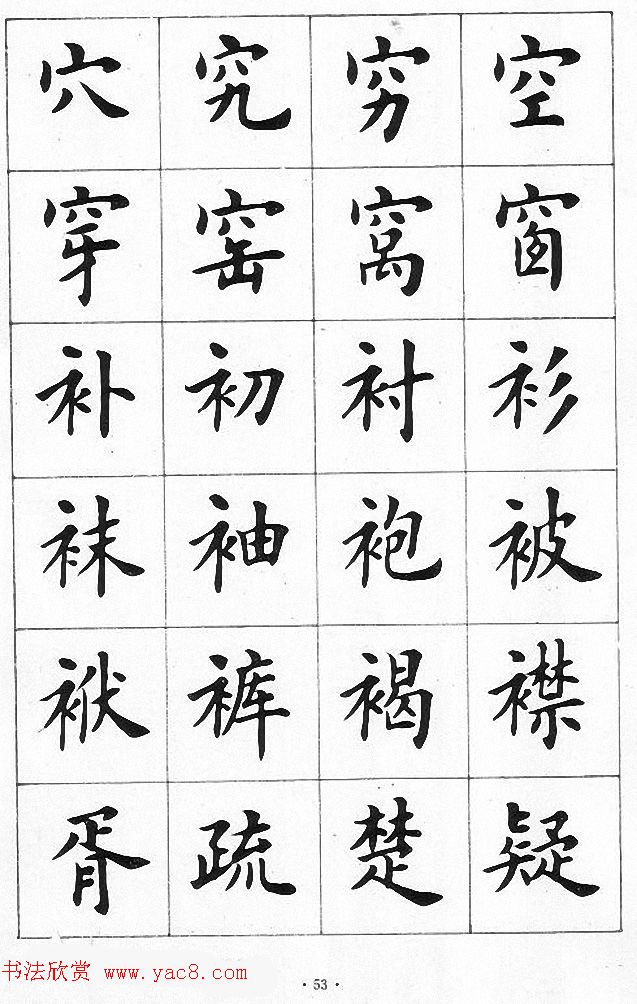 穴 究 穷 空
穿 窑 窝 窗
补 初 衬 衫
袜 袖 袍 被
袱 裤 褐 襟
胥 疏 楚 疑
书法欣赏 www.yac8.com
·53·